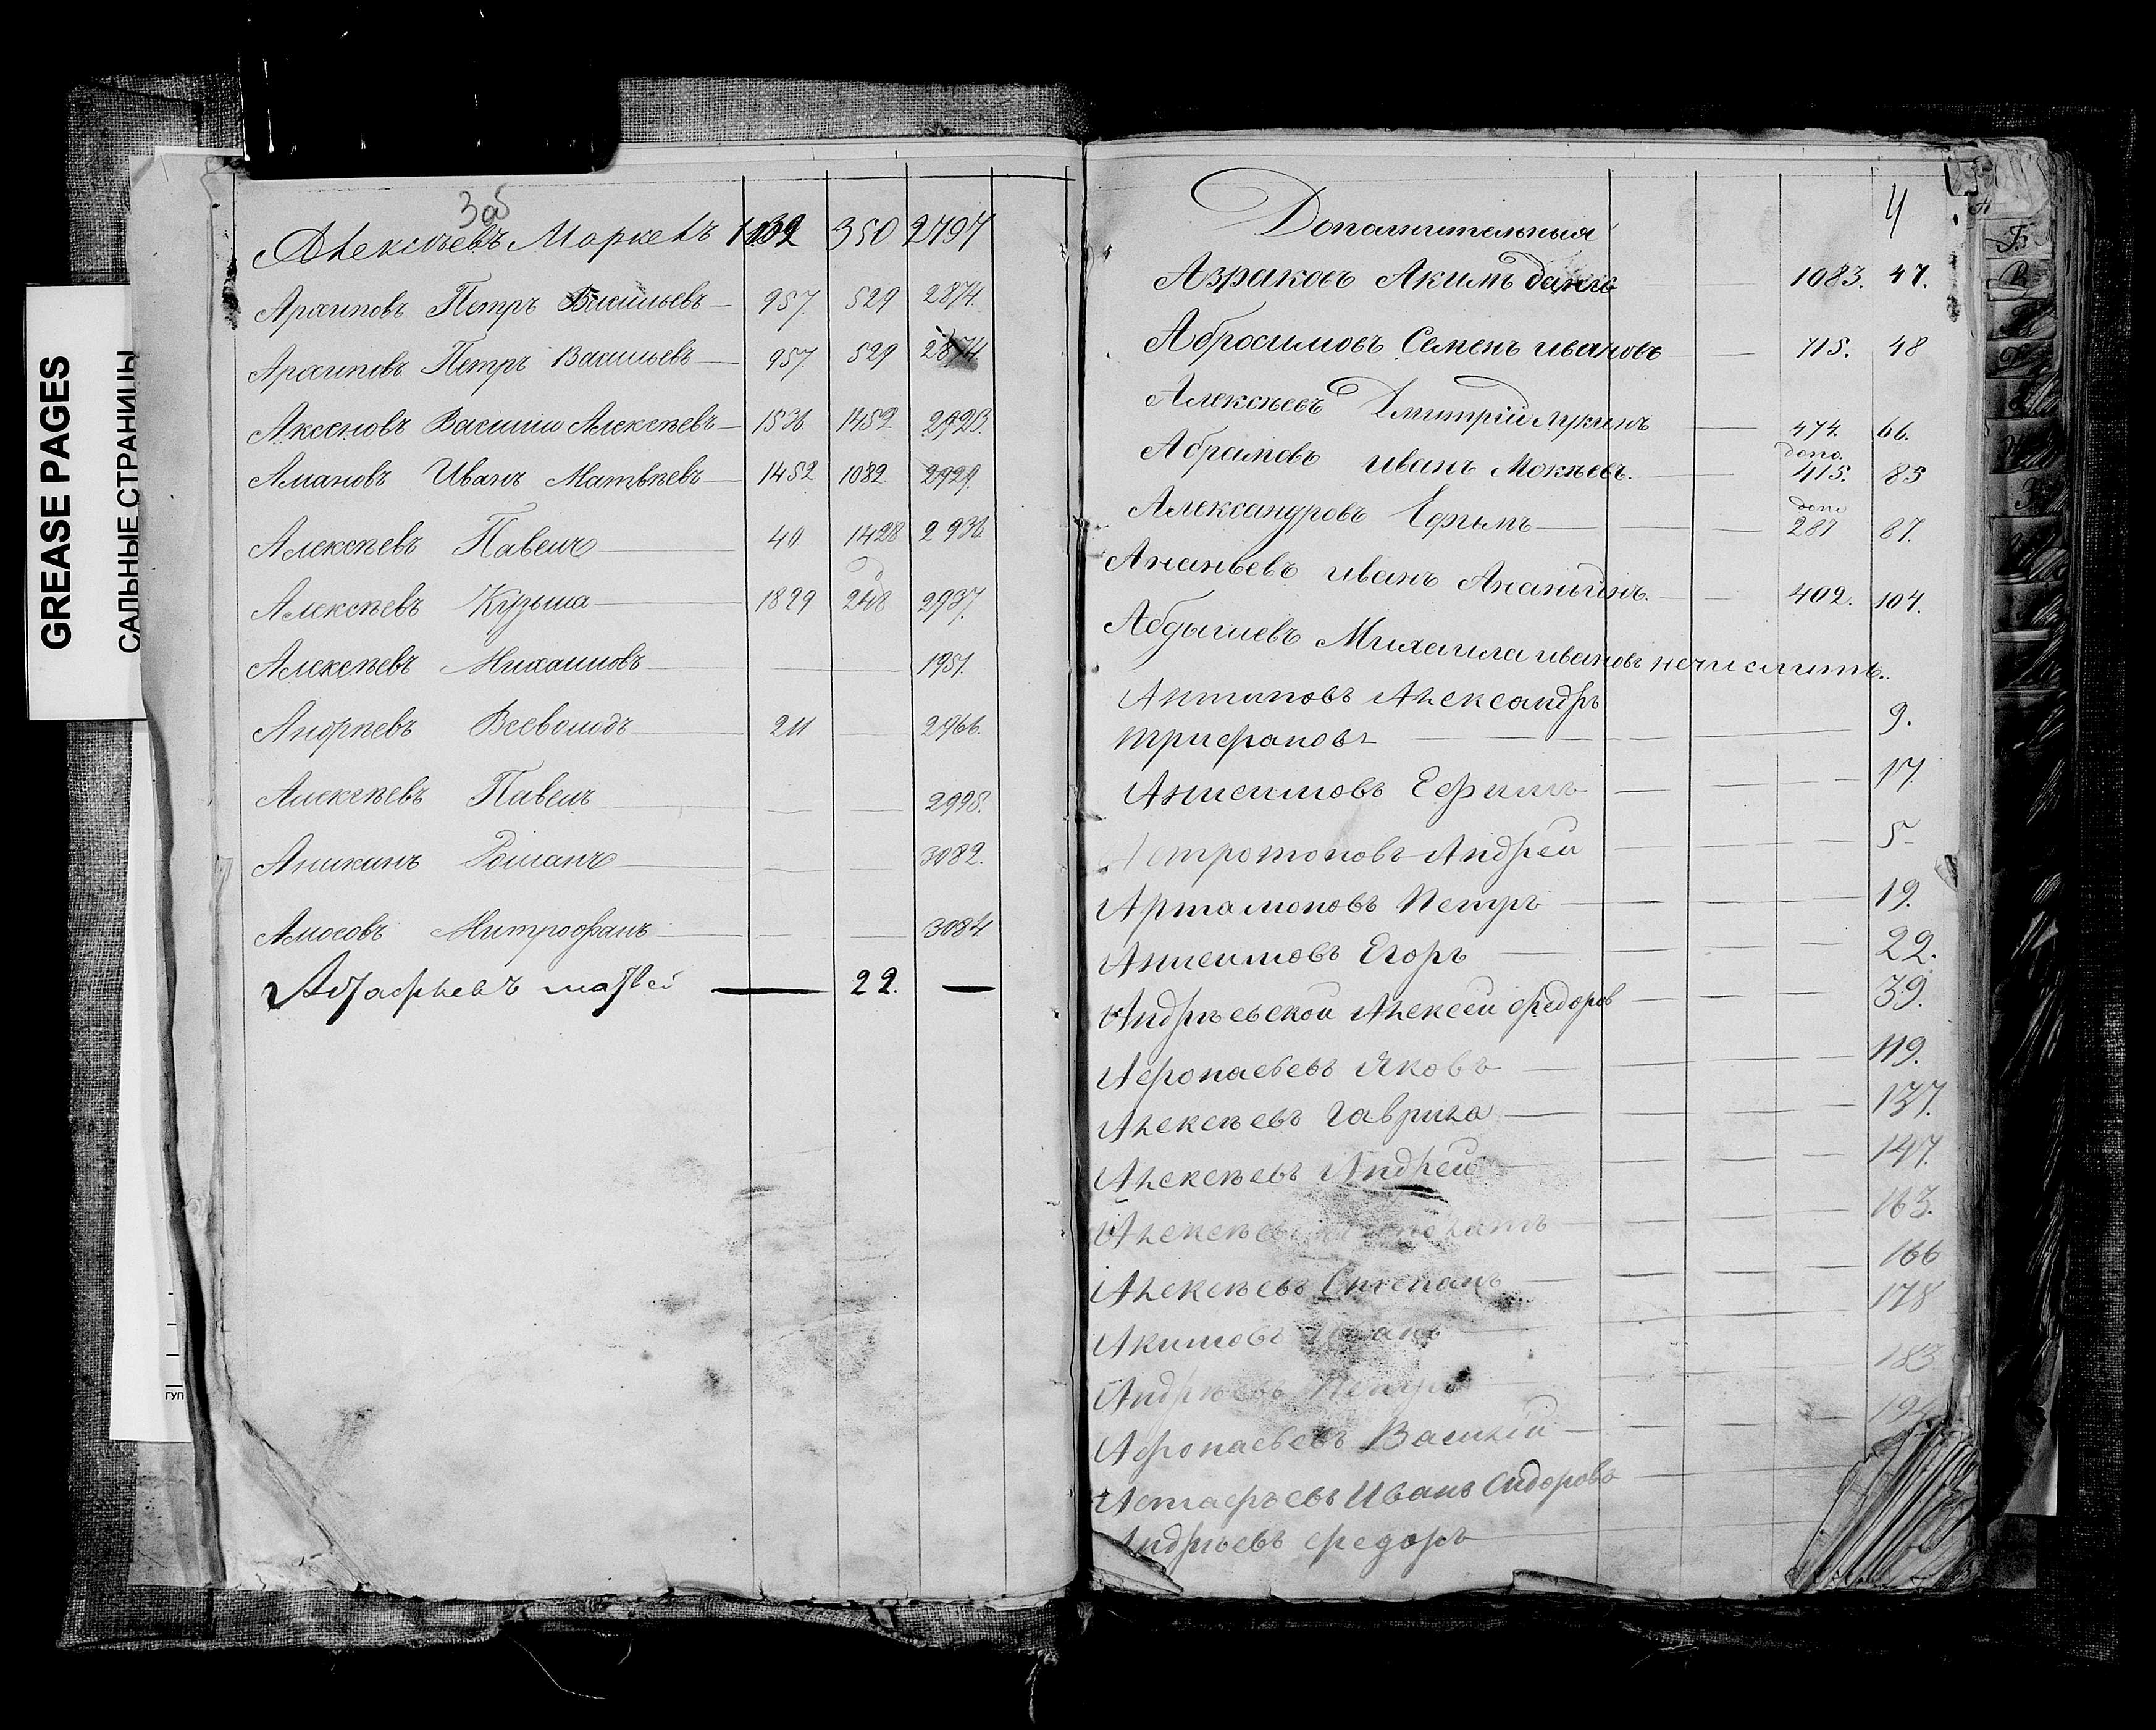 GREASE PAGES
САЛЬНЫЕ СТРАНИЦЫ
ГУП
3 об
Алексѣевъ Маркелъ 1132 350 2797
Архиповъ Петръ Васильевъ 957. 529 2874.
Архиповъ Петръ Васильевъ 957. 529 2874.
Аксеновъ Василий Алексѣевъ 1536. 1452 2923.
Амановъ Иванъ Матвѣевъ 1452 1082 2929.
Алексѣевъ Павелъ 40 1428 2936.
Алексѣевъ Кузьма 1829 2937.
Алексѣевъ Михаиловъ 1951.
Андрѣевъ Всеволодъ 211 2966.
Алексѣевъ Павелъ 2998.
Аникинъ Романъ 3082.
Амосовъ Митрофанъ 3084.
Астафьевъ матвей 22.
4
Дополнительныя
Азраковъ Акимъ 1083. 47.
Абросимовъ Семенъ ивановъ 715. 48
Алексѣевъ Дмитрій лукинъ 474. 66.
Абрамовъ иванъ Мокѣевъ. допо. 415. 85
Александровъ Ефимъ допо 287 87.
Ананьевъ иванъ Ананьинъ. 402. 104.
Михаила ивановъ не числить.
Антиповъ Александръ
трифановъ 9.
Анисимовъ Ефимъ 17.
Андрей 5
Артамоновъ Петръ 19.
Анисимовъ Егоръ 22.
Андрѣевской Алексей Федоров 39.
Афонасьевъ Яковъ 119.
Алексѣевъ Гаврила 137.
Алексѣевъ Андрей 147.
Алексѣевъ 163.
Алексѣевъ Степанъ 166
Акимовъ Иванъ 178
Андрѣевъ Петръ 183
Афонасьевъ Василій
Астафьевъ Иванъ Сидоровъ
Андрѣевъ Федоръ